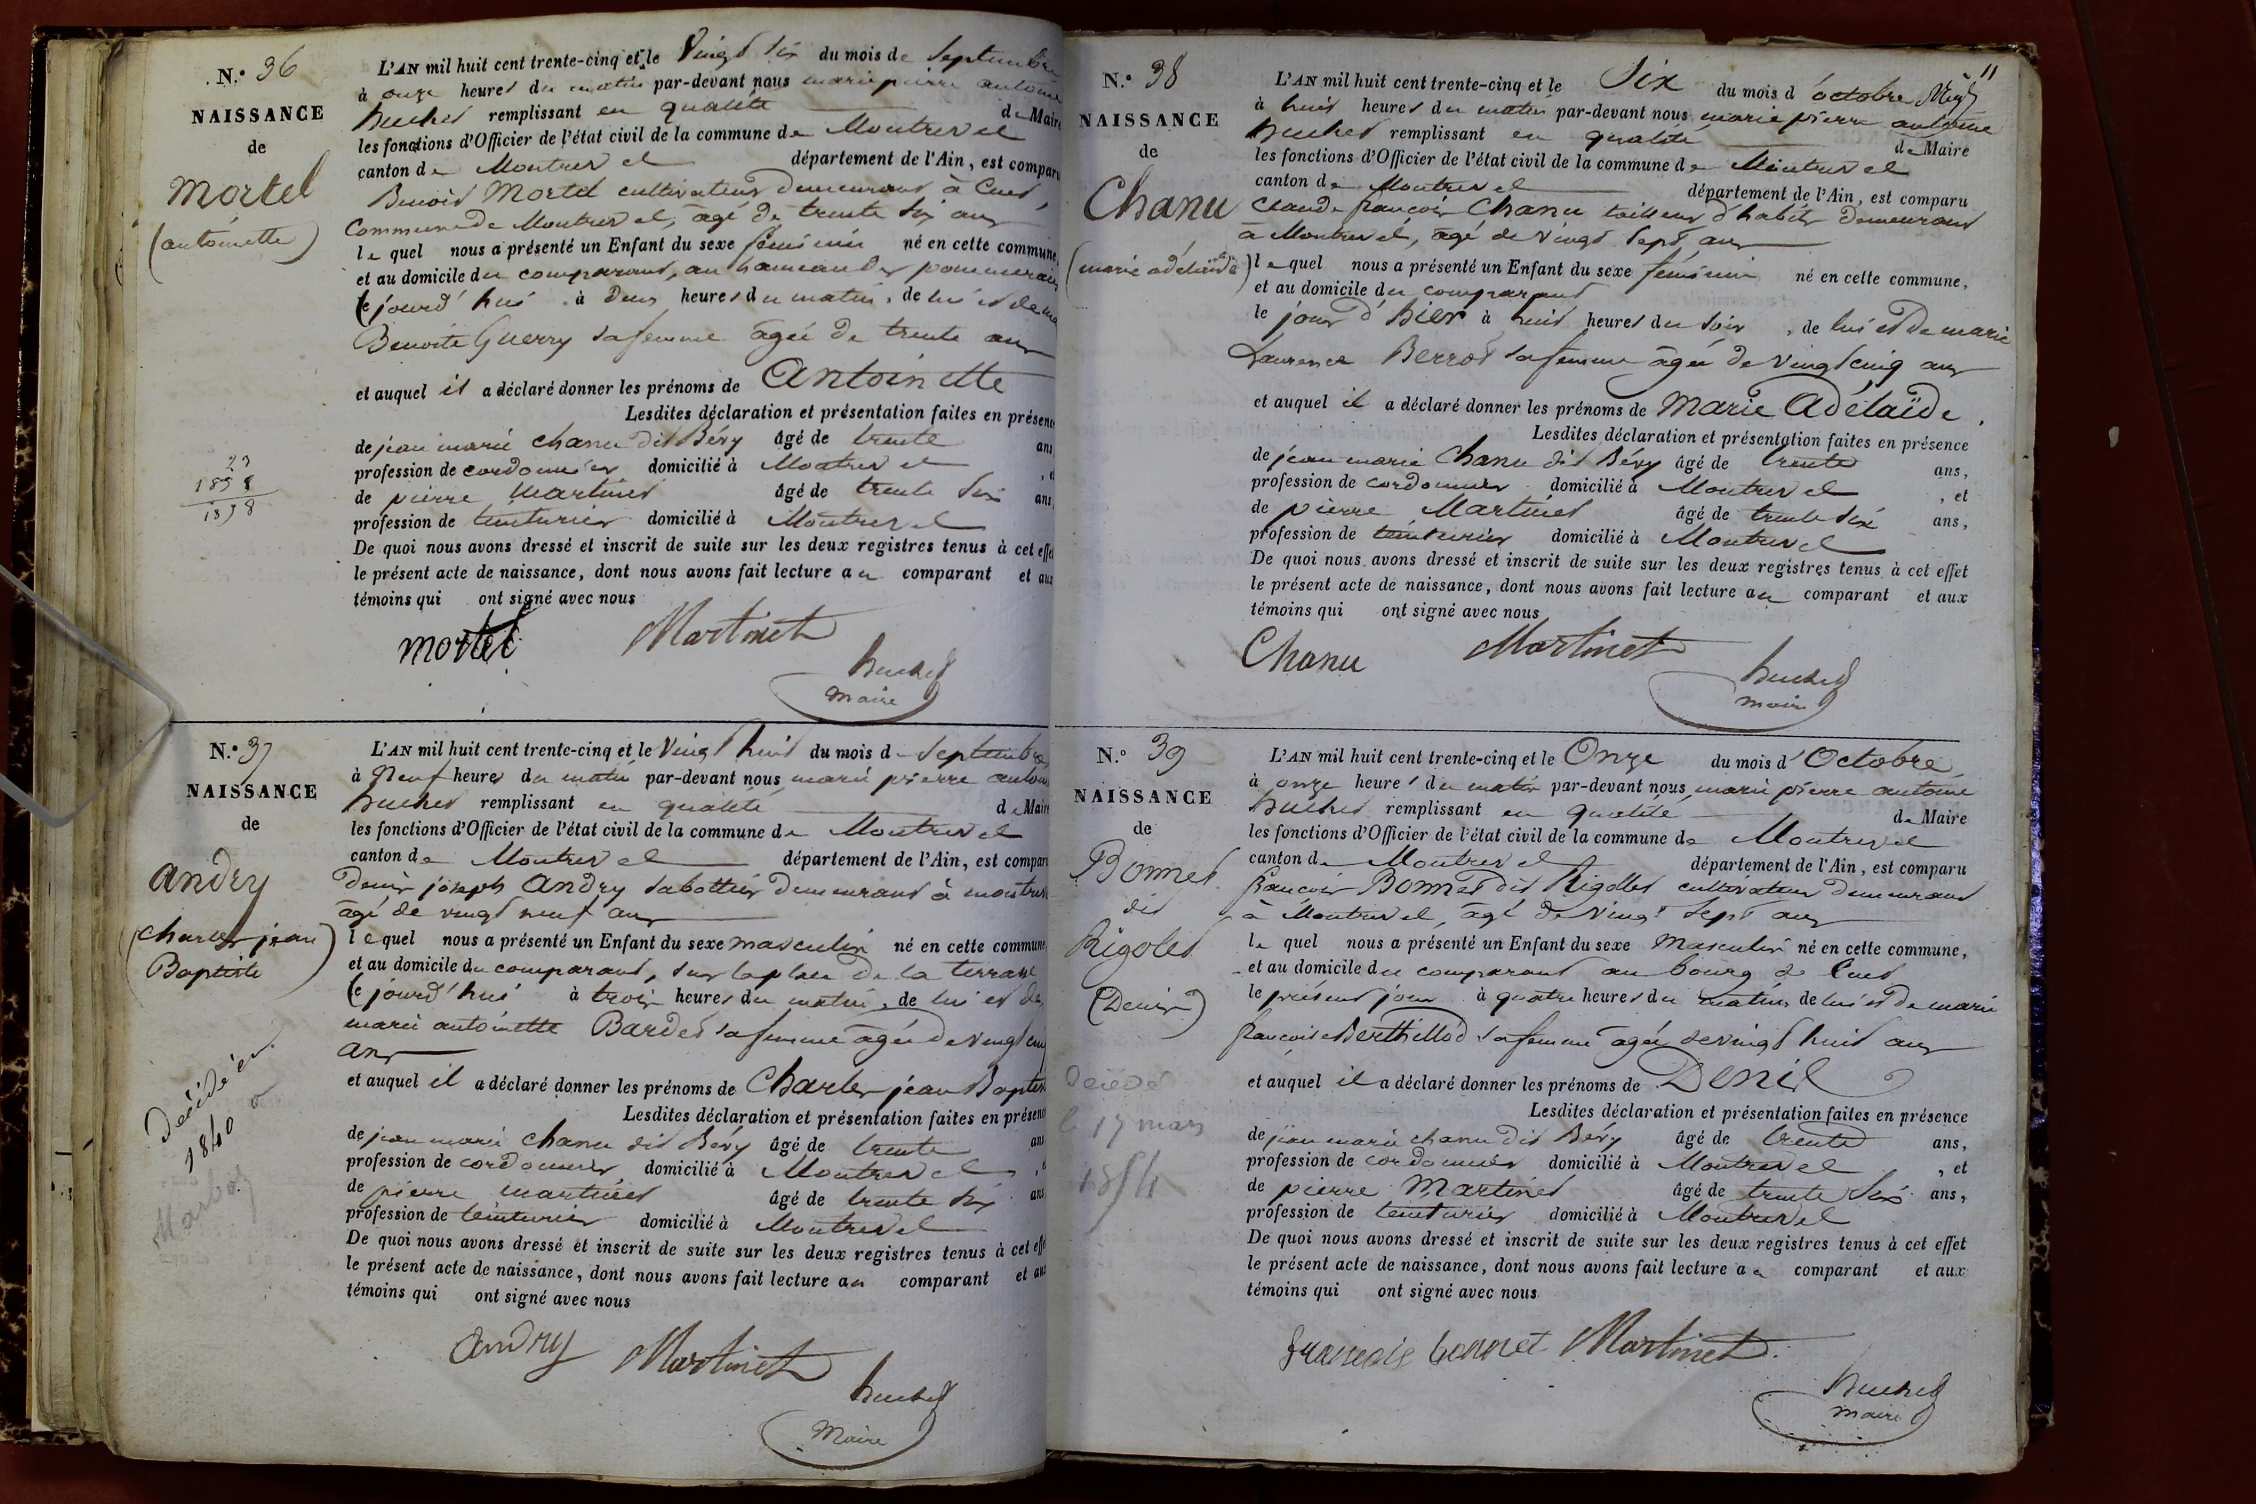 N.º 36
NAISSANCE
de
Mortel
(antoinette)
23
1858
1838
L'AN mil huit cent trente-cinq et le Vingt six du mois de Septembre
à onze heures du matin par-devant nous marie pierre antoine
huchet remplissant en qualité de Maire
les fonctions d'Officier de l'état civil de la commune de Montrevel
canton de Montrevel département de l'Ain, est comparu
Benoit Mortel cultivateur demeurant à Cuet,
Commune de Montrevel, âgé de trente six ans
lequel nous a présenté un Enfant du sexe féminin né en cette commune,
et au domicile du comparant, au hameau des
ce jourd'hui à deux heures du matin, de lui et de
Benoite Guerry sa femme âgée de trente ans
et auquel il a déclaré donner les prénoms de Antoinette
Lesdites déclaration et présentation faites en présence
de jean marie chanu dit Béry âgé de trente ans
profession de cordonnier domicilié à Montrevel , et
de pierre Martinet âgé de trente six ans,
profession de teinturier domicilié à Montrevel
De quoi nous avons dressé et inscrit de suite sur les deux registres tenus à cet effet
le présent acte de naissance, dont nous avons fait lecture au comparant et aux
témoins qui ont signé avec nous
mortel Martinet
huchet
maire
N.º 37
NAISSANCE
de
andry
(charles jean
Baptiste)
Décédé en
1840 à
Marboz
L'AN mil huit cent trente-cinq et le Vingt huit du mois de Septembre
à Neuf heures du matin par-devant nous marie pierre antoine
huchet remplissant en qualité de Maire
les fonctions d'Officier de l'état civil de la commune de Montrevel
canton de Montrevel département de l'Ain, est comparu
Denis joseph Andry sabottier demeurant à montrevel
âgé de vingt neuf ans
lequel nous a présenté un Enfant du sexe masculin né en cette commune
et au domicile du comparant, sur la place de la terrasse
ce jourd'hui à trois heures du matin, de lui et de
marie antoinette Bardet sa femme âgée de vingt cinq
ans
et auquel il a déclaré donner les prénoms de Charles jean Baptiste
Lesdites déclaration et présentation faites en présence
de jean marie chanu dit Bery âgé de trente ans
profession de cordonnier domicilié à Montrevel , et
de pierre martinet âgé de trente six ans
profession de teinturier domicilié à Montrevel
De quoi nous avons dressé et inscrit de suite sur les deux registres tenus à cet effet
le présent acte de naissance, dont nous avons fait lecture au comparant et aux
témoins qui ont signé avec nous
andry Martinet
huchet
Maire
11
N.º 38
NAISSANCE
de
Chanu
(marie adélaïde)
L'AN mil huit cent trente-cinq et le Six du mois d'octobre
à huit heures du matin par-devant nous marie pierre antoine
huchet remplissant en qualité de Maire
les fonctions d'Officier de l'état civil de la commune de Montrevel
canton de Montrevel département de l'Ain, est comparu
Claude françois Chanu tailleur d'habits demeurant
à Montrevel, âgé de vingt sept ans
lequel nous a présenté un Enfant du sexe féminin né en cette commune,
et au domicile du comparant
le jour d'hier à huit heures du soir , de lui et de marie
Laurence Berrod sa femme âgée de vingt cinq ans
et auquel il a déclaré donner les prénoms de Marie Adélaïde,
Lesdites déclaration et présentation faites en présence
de jean marie Chanu dit Béry âgé de trente ans,
profession de cordonnier domicilié à Montrevel , et
de pierre Martinet âgé de trente six ans,
profession de teinturier domicilié à Montrevel
De quoi nous avons dressé et inscrit de suite sur les deux registres tenus à cet effet
le présent acte de naissance, dont nous avons fait lecture au comparant et aux
témoins qui ont signé avec nous
Chanu Martinet
huchet
maire
N.º 39
NAISSANCE
de
Bonnet
dit
Rigolet
(Denis)
Décédé
le 17 mars
1854
L'AN mil huit cent trente-cinq et le Onze du mois d'Octobre
à onze heures du matin par-devant nous marie pierre antoine
huchet remplissant en qualité de Maire
les fonctions d'Officier de l'état civil de la commune de Montrevel
canton de Montrevel département de l'Ain, est comparu
françois Bonnet dit Rigollet cultivateur demeurant
à Montrevel, âgé de vingt sept ans
lequel nous a présenté un Enfant du sexe Masculin né en cette commune,
et au domicile du comparant au bourg de Cuet
le présent jour à quatre heures du matin, de lui et de marie
françoise Berthillod sa femme âgée de vingt huit ans
et auquel il a déclaré donner les prénoms de Denis
Lesdites déclaration et présentation faites en présence
de jean marie chanu dit Béry âgé de trente ans,
profession de cordonnier domicilié à Montrevel , et
de pierre Martinet âgé de trente six ans,
profession de teinturier domicilié à Montrevel
De quoi nous avons dressé et inscrit de suite sur les deux registres tenus à cet effet
le présent acte de naissance, dont nous avons fait lecture au comparant et aux
témoins qui ont signé avec nous
francois bonnet Martinet
huchet
maire